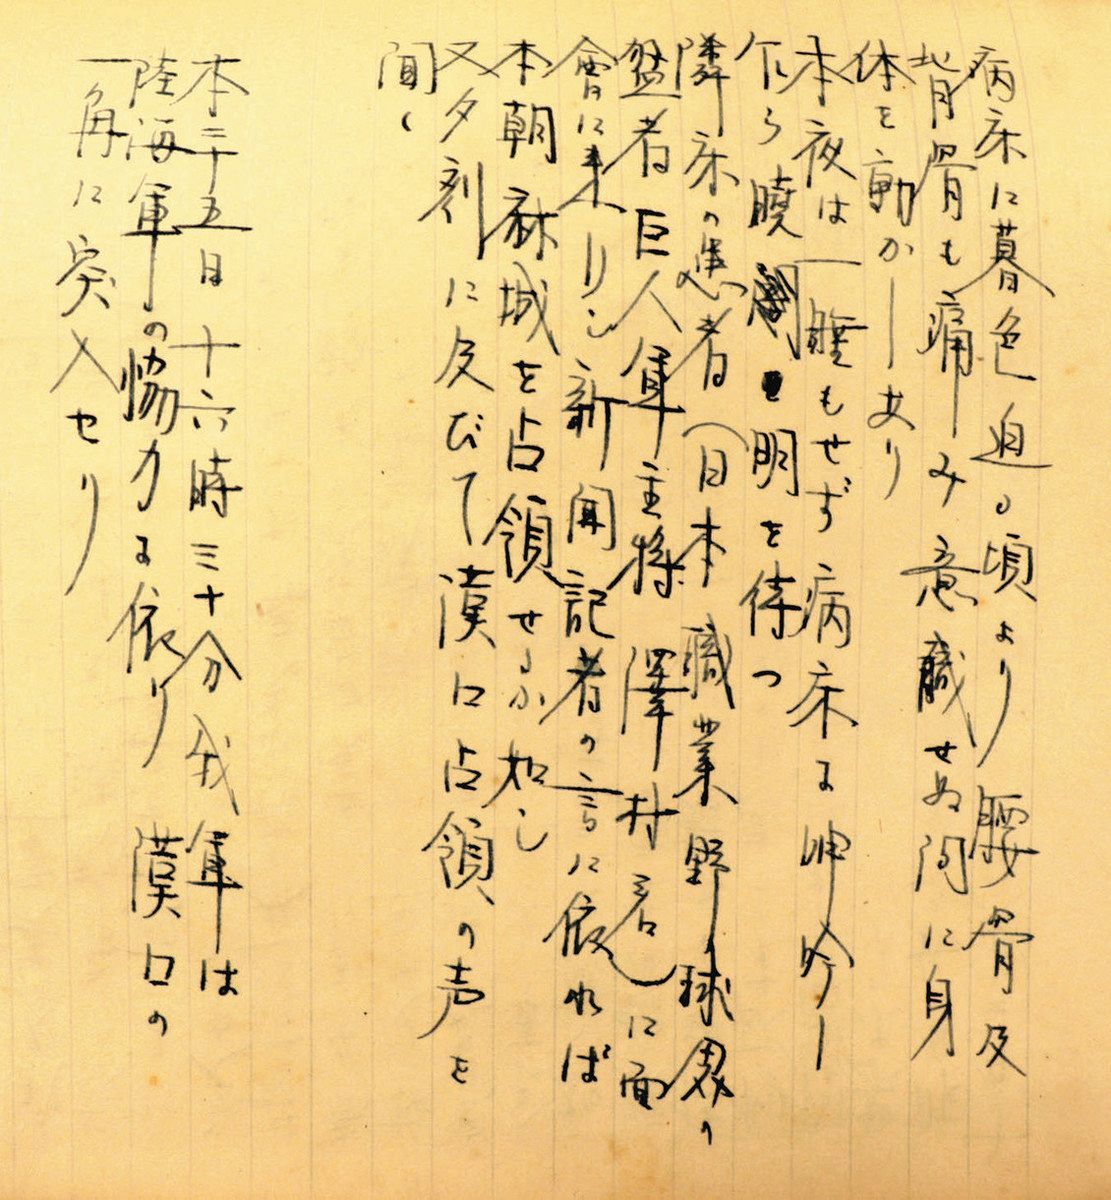 病床に暮色迫る頃より腰骨及
背骨も痛み意識せぬ間に身
体を動かしあり
本夜は一睡もせず病床に呻吟し
乍ら暁闇明を待つ
隣床の患者（日本職業野球界の
盟者巨人軍主将澤村君）に面
會に来りし新聞記者の言に依れば
本朝麻城を占領せるが如し
又夕刻に及びて漢口占領の声を
聞く
本二十五日十六時三十分我軍は
陸海軍の協力に依り漢口の
一角に突入セリ